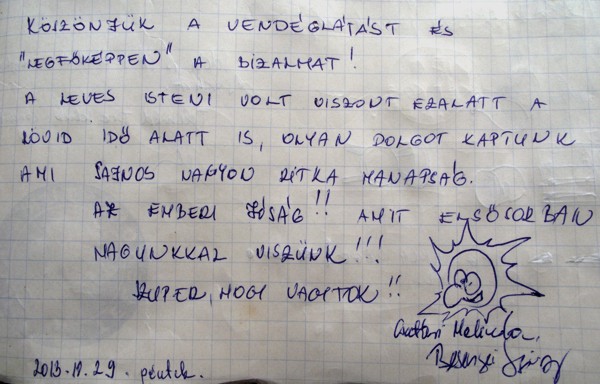 KÖSZÖNJÜK A VENDÉGLÁTÁST ÉS
"LEGFŐKÉPPEN" A BIZALMAT!
A LEVES ISTENI VOLT VISZONT EZALATT A
RÖVID IDŐ ALATT IS, OLYAN DOLGOT KAPTUNK
AMI SAJNOS NAGYON RITKA MANAPSÁG.
AZ EMBERI JÓSÁG!! AMIT ELSŐSORBAN
MAGUNKKAL VISZÜNK!!!
SZUPER, HOGY VAGYTOK!!
Melinda,
2013.11.29. péntek.